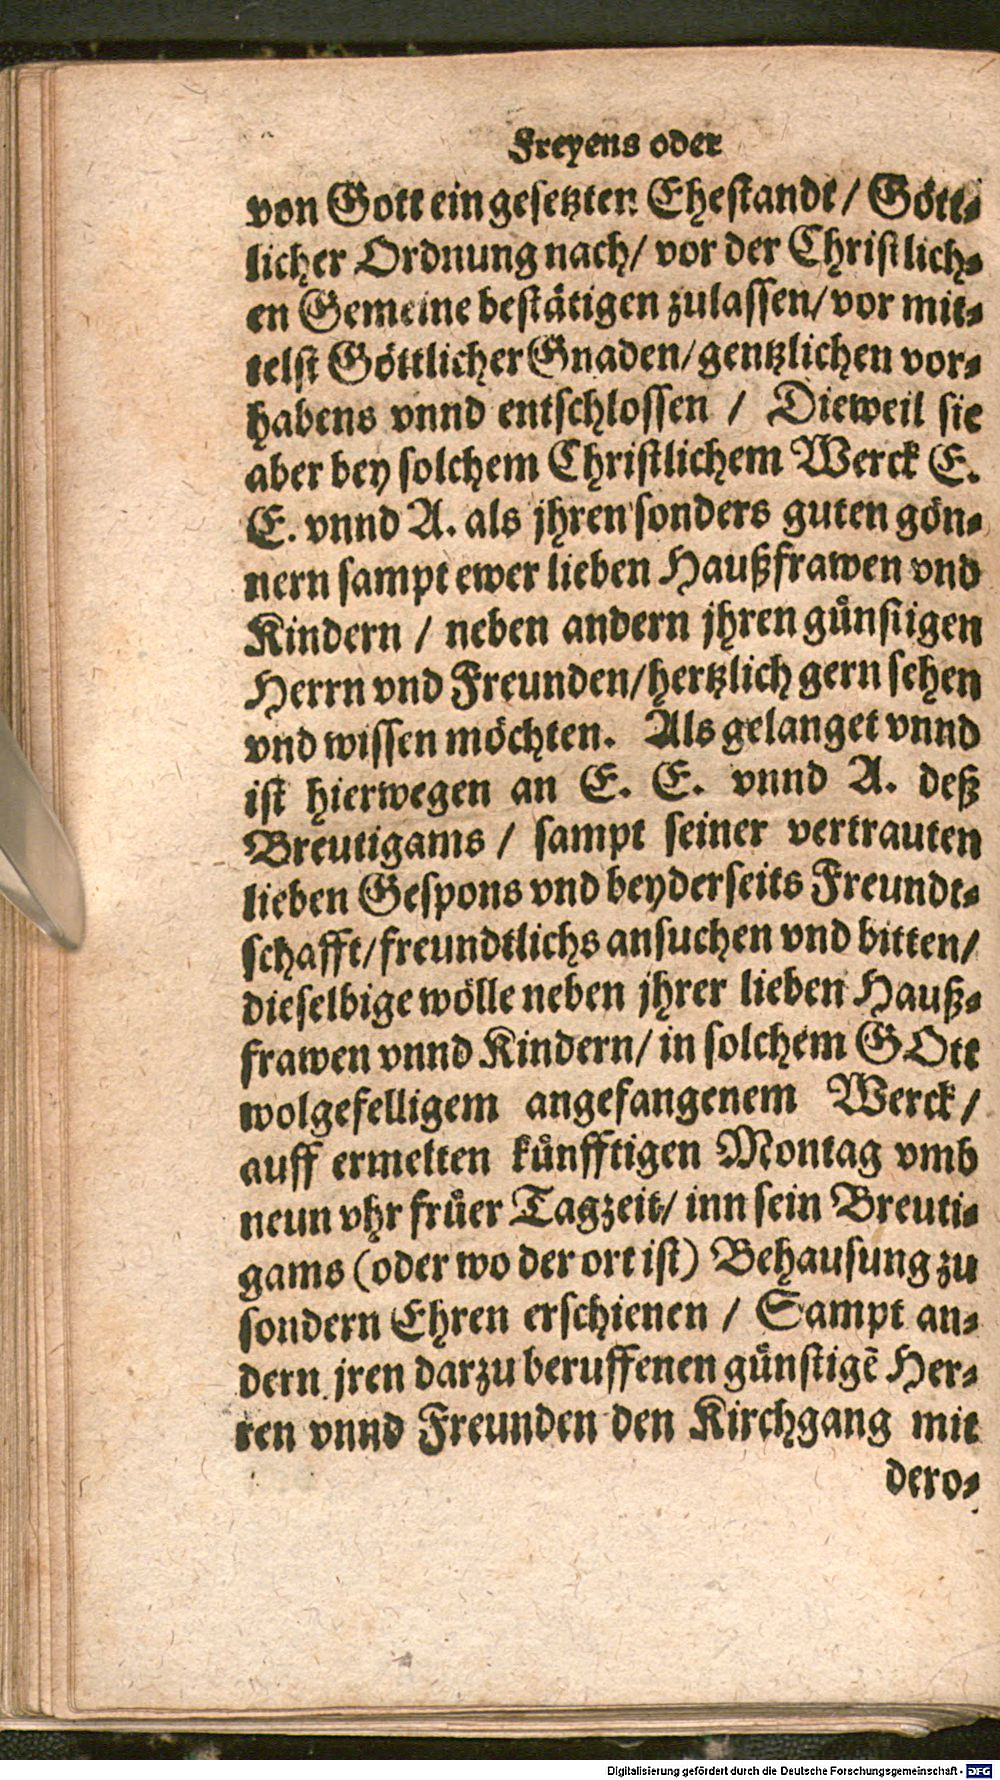 Freyens oder
von Gott eingesetzten Ehestandt / Gött-
licher Ordnung nach/ vor der Christlich-
en Gemeine bestätigen zulassen/ vor mit-
telst Göttlicher Gnaden/ gentzlichen vor-
habens vnnd entschlossen / Dieweil sie
aber bey solchem Christlichem Werck E.
E. vnnd A. als jhren sonders guten gön-
nern sampt ewer lieben Haußfrawen vnd
Kindern / neben andern jhren gůnstigen
Herrn vnd Freunden/ hertzlich gern sehen
vnd wissen möchten. Als gelanget vnnd
ist hierwegen an E. E. vnnd A. deß
Breutigams / sampt seiner vertrauten
lieben Gespons vnd beyderseits Freundt-
schafft/ freundtlichs ansuchen vnd bitten/
dieselbige wölle neben jhrer lieben Hauß-
frawen vnnd Kindern/ in solchem GOtt
wolgefelligem angefangenem Werck/
auff ermelten kůnfftigen Montag vmb
neun vhr frůer Tagzeit/ inn sein Breuti-
gams (oder wo der ort ist) Behausung zu
sondern Ehren erschienen / Sampt an-
dern jren darzu beruffenen gůnstigẽ Her-
ren vnnd Freunden den Kirchgang mit
dero-
Digitalisierung gefördert durch die Deutsche Forschungsgemeinschaft - DFG